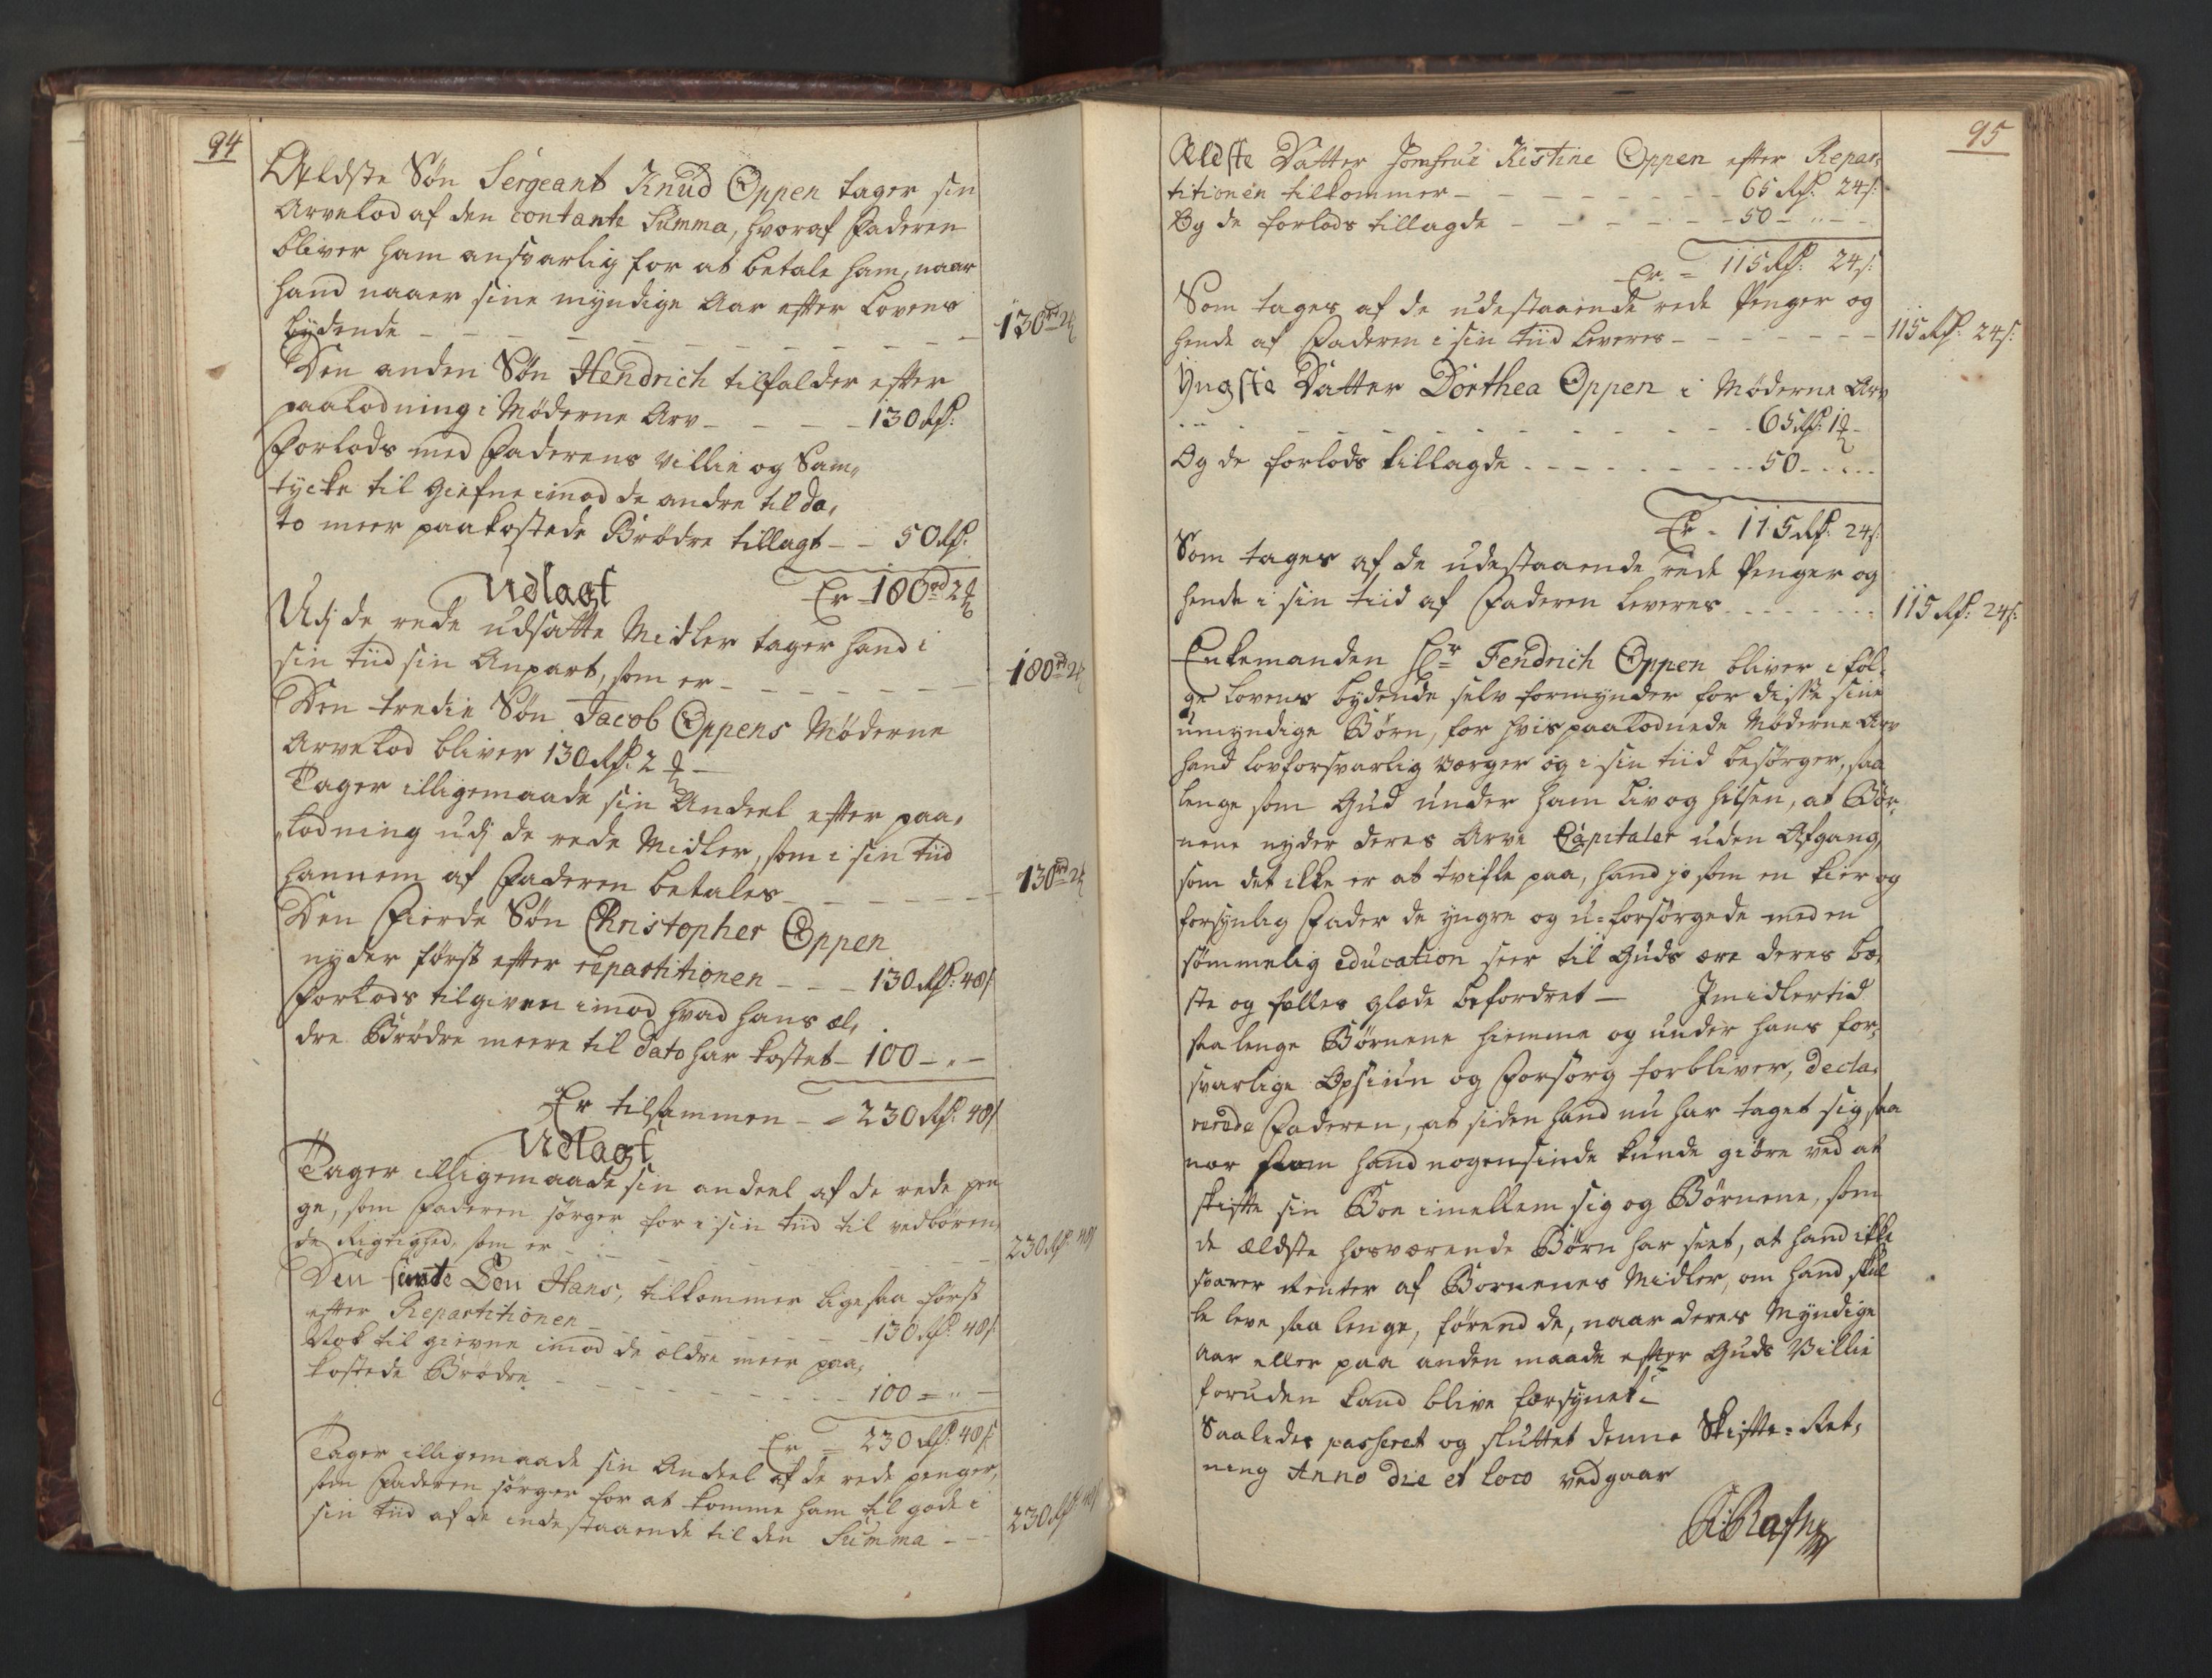 94
Ældste Søn Sergeant Knud Oppen tager sin
Arvelod af den contante Summa, hvoraf Faderen
bliver ham ansvarlig for at betale ham, naar
hand naaer sine myndige Aar efter Lovens
bydende - - - - - - - - - 130 rd 2
Den anden Søn Hendrich tilfalder efter
paalodning i Møderne Arv - - - - 130 Rd:
Forlods med Faderens Villie og Sam-
tycke til Giefne imod de andre til da-
to meer paakostede Brødre tillagt - - 50 Rd:
Er - 180 rd 2
Udlagt
Udj de rede udsatte Midler tager hand i
sin tiid sin Anpart, som er - - - - - - 180 rd 2
Den tredie Søn Jacob Oppens Møderne
Arvelod bliver 130 Rd: 2
Tager illigemaade sin Andeel efter paa-
lodning udj de rede Midler, som i sin tiid
hannem af Faderen betales - - - - - 130 rd 2
Den Fierde Søn Christopher Oppen
nyder først efter repartitionen - - - 130 Rd: 48 s
Forlods tilgiven imod hvad hans æl-
dre Brødre meere til dato har kostet - 100 - " -
Er tilsammen - = 230 Rd: 48 s
Udlagt
Tager illigemaade sin andeel af de rede pen
ge, som Faderen sørger for i sin tiid til vedbøren-
de Rigtighed, som er - - - - - - 230 Rd: 48 s
Den femte Søn Hans, tilkommer ligesaa først
efter Repartitionen - - - - - - 130 Rd: 48 s
Nok til givne imod de ældre meer paa-
kostede Brødre - - - - - - - 100 = " -
Er = 230 Rd: 48 s
Tager illigemaade sin Andeel af de rede penger,
som Faderen sørger for at komme ham til gode i
sin tiid af de indestaaende til den Summa - - 230 Rd: 48 s
95
Ældste Datter Jomfrue Kistine Oppen efter Repar-
titionen tilkommer - - - - - - - 65 Rd: 24 s:
Og de forlods tillagde - - - - - - 50 - " - -
Er = 115 Rd: 24 s:
Som tages af de udestaaende rede Penger og
hende af Faderen i sin tiid leveres - - - - - - 115 Rd: 24 s:
Yngste Datter Dorthea Oppen i Møderne Arv
- - - - - - - - - - - 65 Rd: 1
Og de forlods tillagde - - - - - - - 50 - - " - -
Er - 115 Rd: 24 s:
Som tages af de udestaaende rede Penger og
hende i sin tiid af Faderen leveres - - - - - - 115 Rd: 24 s:
Enkemanden Hr Fendrich Oppen bliver i føl-
ge Lovens bydende selv formynder for disse sine
umyndige Børn, for hvis paalodnede Møderne Arv
hand lovforsvarlig værger og i sin tiid besørger, saa
lenge som Gud under ham Liv og Hilsen, at Bør-
nene nyder deres Arve Capitaler uden Afgang,
som det ikke er at tvifle paa, hand jo som en kier og
forsynlig Fader de yngre og u-forsørgede med en
sømmelig education seer til Guds ære deres be-
ste og fælles glæde befordret - Imidlertid
saa lenge Børnene hiemme og under hans for-
svarlige Opsiun og Forsorg forbliver, decla-
rerede Faderen, at siden hand nu har taget sig saa
nær som hand nogensinde kunde giøre ved at
skifte sin Boe imellem sig og Børnene, som
de ældste hosværende Børn har seet, at hand ikke
svarer Renter af Børnenes Midler, om hand skul
le leve saa lenge, førend de, naar deres Myndige
aar eller paa anden maade efter Guds Villie
foruden kand blive forsynet -
Saaledes passeret og sluttet denne Skifte-Ret-
ning Anno die et loco vedgaar